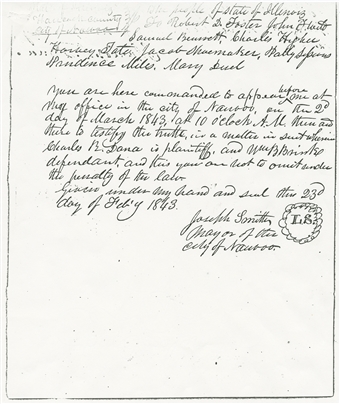 The people of State of Illinois
Hancock County
City of Nauvoo To Robert D. Foster John F. Harts
Samuel Bennett Charles Higbee
Harvey Jacob Shoemaker, Patty Sessions
Prudence Miles, Mary Duel
You are here commanded to appear before me at
my office in the city of Nauvoo, on the 2d
day of March 1843, at 10 o'clock A.M. then and
there to testify the truth, in a matter in suit wherein
Charles R. Dana is plaintiff, and Wm B Brink
defendant and this you are not to omit under
the penalty of the law.
Given under my hand and seal this 23d
day of Feb'y 1843.
Joseph Smith
Mayor of the
City of Nauvoo.
L.S.